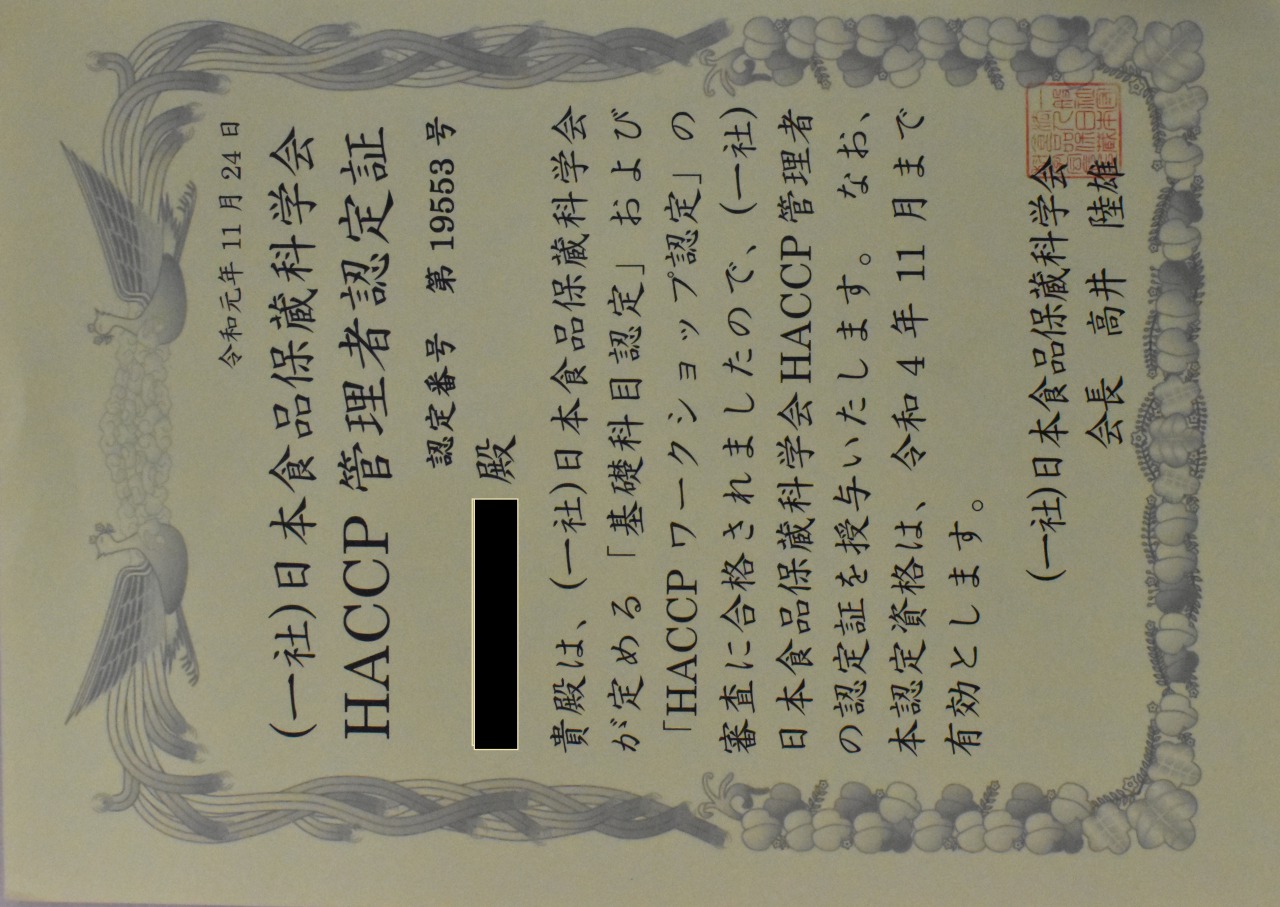 令和元年 11 月 24 日
(一社)日本食品保蔵科学会
HACCP 管理者認定証
認定番号　第 19553 号
殿
貴殿は、(一社)日本食品保蔵科学会
が定める「基礎科目認定」および
「HACCP ワークショップ認定」の
審査に合格されましたので、(一社)
日本食品保蔵科学会HACCP管理者
の認定証を授与いたします。　なお、
本認定資格は、令和 4 年 11 月まで
有効とします。
(一社)日本食品保蔵科学会
会長　高井　陸雄